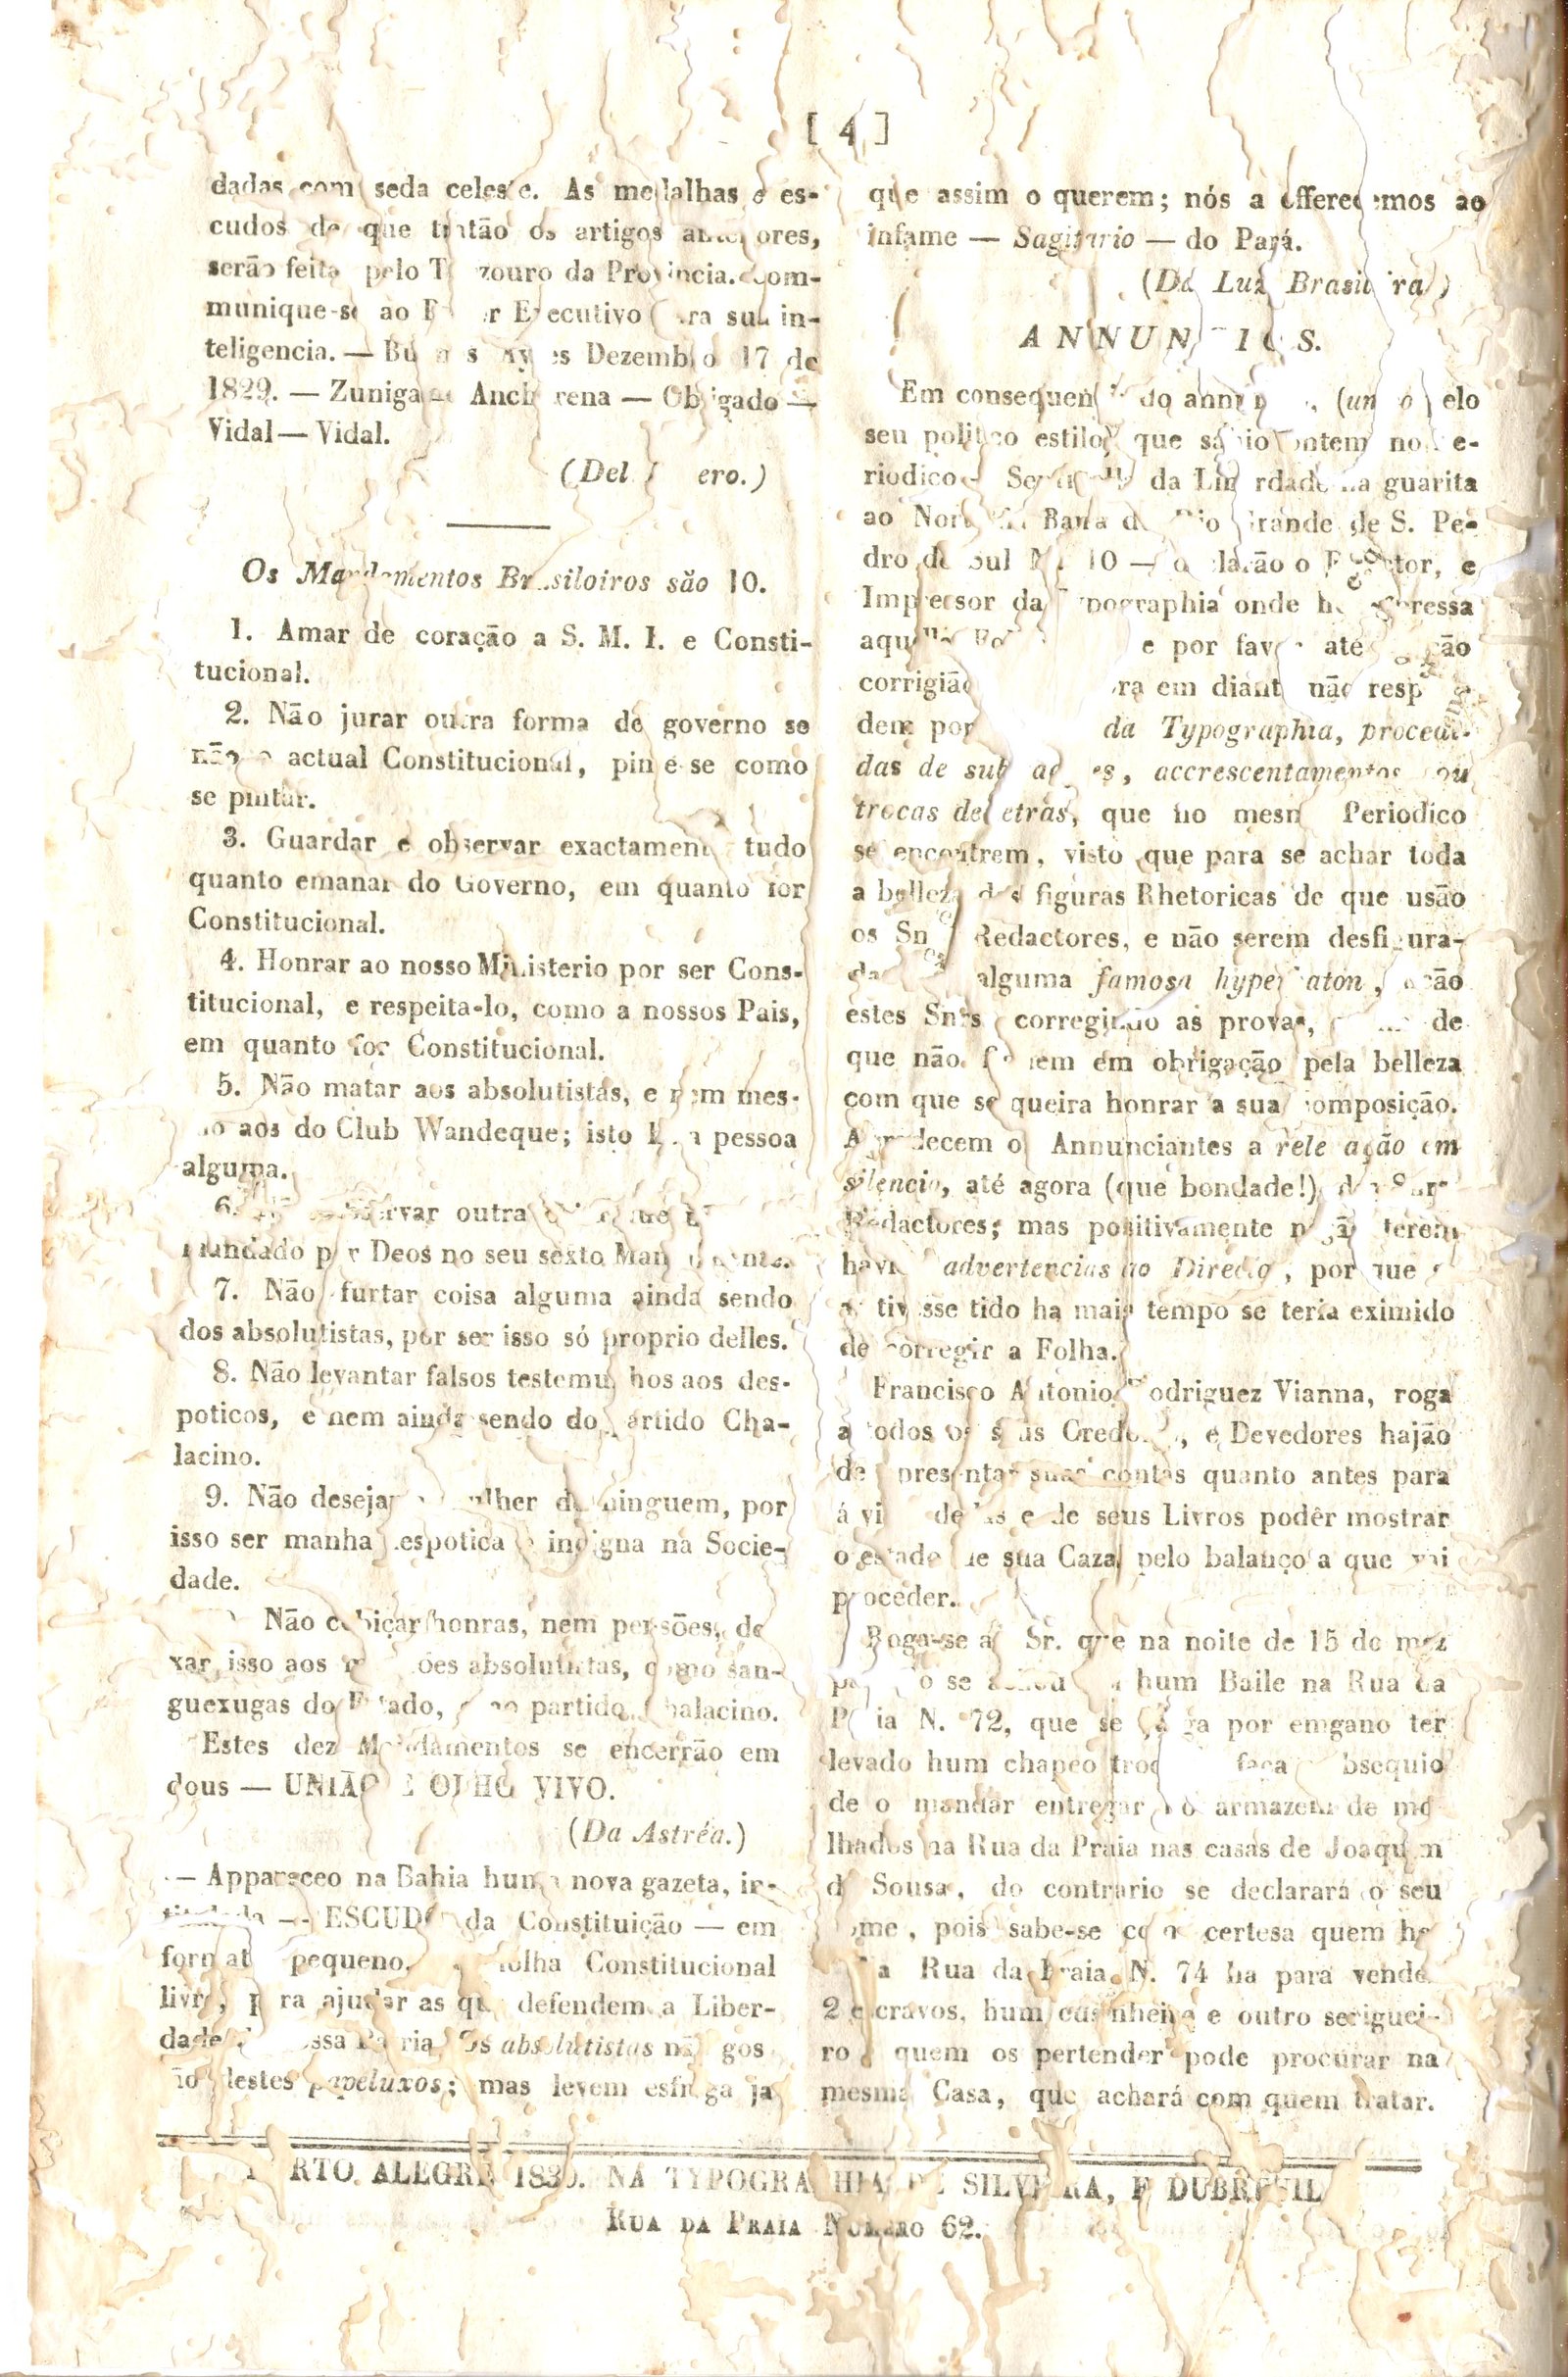 [ 4 ]
dadas com seda celeste. As medalhas e es-
cudos de que tratão os artigos anteriores,
serão feita pelo Thezouro da Provincia. Com-
munique-se ao Executivo para sua in-
teligencia. — Buenos Ayres Dezembro 17 de
1829. — Zuniga — Anchorena — Obrigado —
Vidal — Vidal.
(Del ero.)
Os Mandamentos Brasiloiros são 10.
1. Amar de coração a S. M. I. e Consti-
tucional.
2. Não jurar outra forma de governo se
não o actual Constitucional, pinte-se como
se pintar.
3. Guardar e observar exactamente tudo
quanto emanar do Governo, em quanto for
Constitucional.
4. Honrar ao nosso Ministerio por ser Cons-
titucional, e respeita-lo, como a nossos Pais,
em quanto for Constitucional.
5. Não matar aos absolutistas, e nem mes-
mo aos do Club Wandeque; isto he a pessoa
alguma.
6. outra
mandado por Deos no seu sexto Mandamento.
7. Não furtar coisa alguma ainda sendo
dos absolutistas, por ser isso só proprio delles.
8. Não levantar falsos testemunhos aos des-
poticos, e nem ainda sendo do partido Cha-
lacino.
9. Não desejar a mulher de ninguem, por
isso ser manha despotica e indigna na Socie-
dade.
Não cobiçar honras, nem pensões, de
xar isso aos absolutistas, como san-
guexugas do Estado, e ao partido Chalacino.
Estes dez Mandamentos se encerrão em
dous — UNIÃO E OLHO VIVO.
(Da Astréa.)
— Appareceo na Bahia huma nova gazeta, in-
titulada — ESCUDO da Constituição — em
formato pequeno, folha Constitucional
livre, para ajudar as que defendem a Liber-
dade da nossa Patria. Os absolutistas não gos
tão destes papeluxos; mas levem esfrega ja
que assim o querem; nós a offerecemos ao
infame — Sagitario — do Pará.
(Da Luz Brasileira)
ANNUNCIOS.
Em consequencia do annuncio, (unico pelo
seu politico estilo) que sahio ontem no Pe-
riodico — Sentinella da Liberdade na guarita
ao Norte da Barra do Rio Grande de S. Pe-
dro do Sul N. 10 — declarão o Director, e
Impressor da Typographia onde he impressa
aquella e por favor até
corrigião em diante não respon
dem por da Typographia, procedi-
das de accrescentamentos, ou
trocas de letras, que no mesmo Periodico
se encontrem, visto que para se achar toda
a belleza das figuras Rhetoricas de que usão
os Snrs Redactores, e não serem desfigura-
das alguma famosa hyperbaton,
estes Snrs corregindo as provas, de
que não fiquem em obrigação pela belleza
com que se queira honrar a sua composição.
Agradecem os Annunciantes a relevação em
silencio, até agora (que bondade!) dos Snrs
Redactores; mas positivamente negão terem
havido advertencias ao Director, porque se
as tivesse tido ha mais tempo se teria eximido
de corregir a Folha.
Francisco Antonio Rodriguez Vianna, roga
a todos os seus Credores, e Devedores hajão
de apresentar suas contas quanto antes para
á vista dellas e de seus Livros podêr mostrar
o estado de sua Caza pelo balanço a que vai
proceder.
Roga-se ao Sr. que na noite de 15 do mez
passado se achou em hum Baile na Rua da
Praia N. 72, que se julga por emgano ter
levado hum chapeo trocado faça obsequio
de o mandar entregar no armazem de mo
lhados na Rua da Praia nas casas de Joaquim
de Sousa, do contrario se declarará o seu
nome, pois sabe-se com certesa quem he
Na Rua da Praia N. 74 ha para vender
2 escravos, hum cusinheiro e outro seriguei-
ro quem os pertender pode procurar na
mesma Casa, que achará com quem tratar.
PORTO ALEGRE 1830. NA TYPOGRAPHIA DE SILVEIRA, E DUBREUIL
RUA DA PRAIA NUMERO 62.